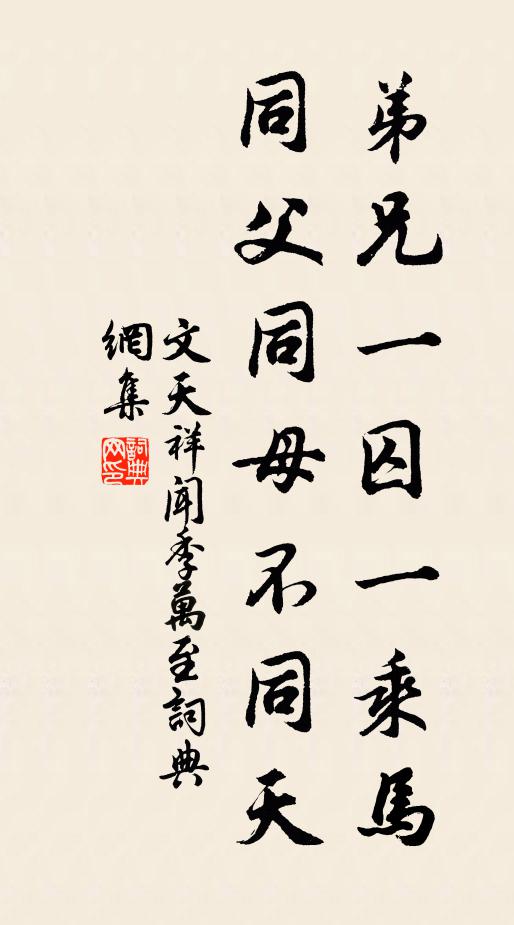 弟兄一囚一乘馬
同父同母不同天
文天祥聞季萬至詞典
網集
詞典網印